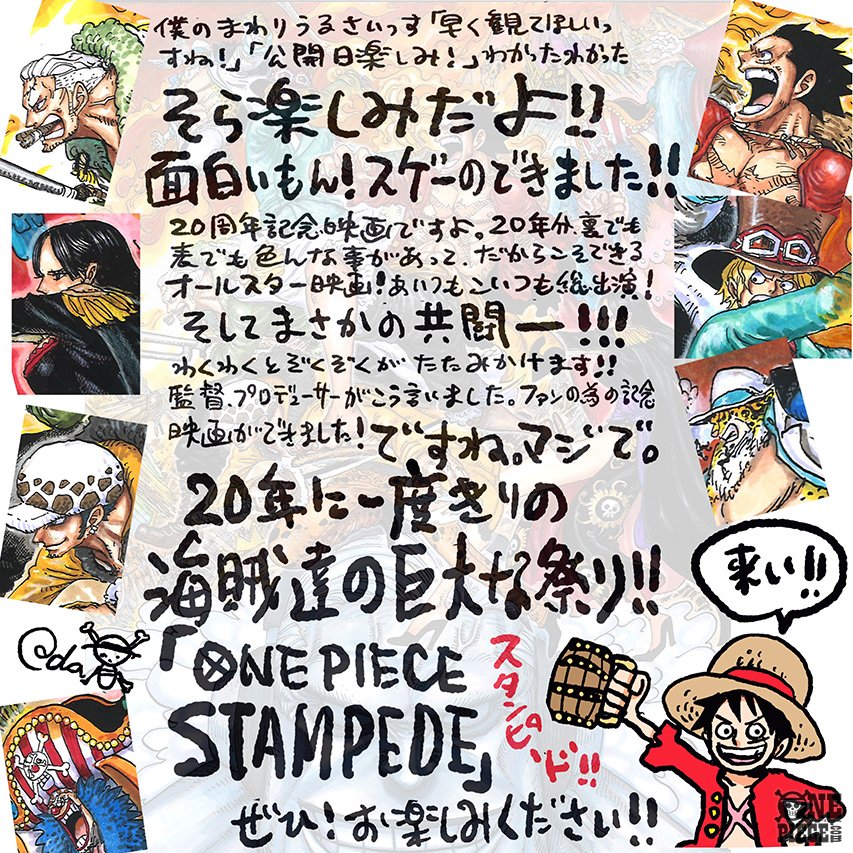 僕のまわりうるさいっす「早く観てほしいっ
すね!」「公開日楽しみ!」わかったわかった
そら楽しみだよ!!
面白いもん!スゲーのできました!!
20周年記念映画ですよ。20年分、裏でも
表でも色んな事があって、だからこそできる
オールスター映画!あいつもこいつも総出演!
そしてまさかの共闘ー!!!
わくわくとぞくぞくがたたみかけます!!
監督、プロデューサーがこう言いました。ファンの為の記念
映画ができました!ですね。マジで。
20年に一度きりの
海賊達の巨大な祭り!!
「ONE PIECE
STAMPEDE」
スタンピード!!
ぜひ!お楽しみください!!
来い!!
ONE
PIECE
.COM